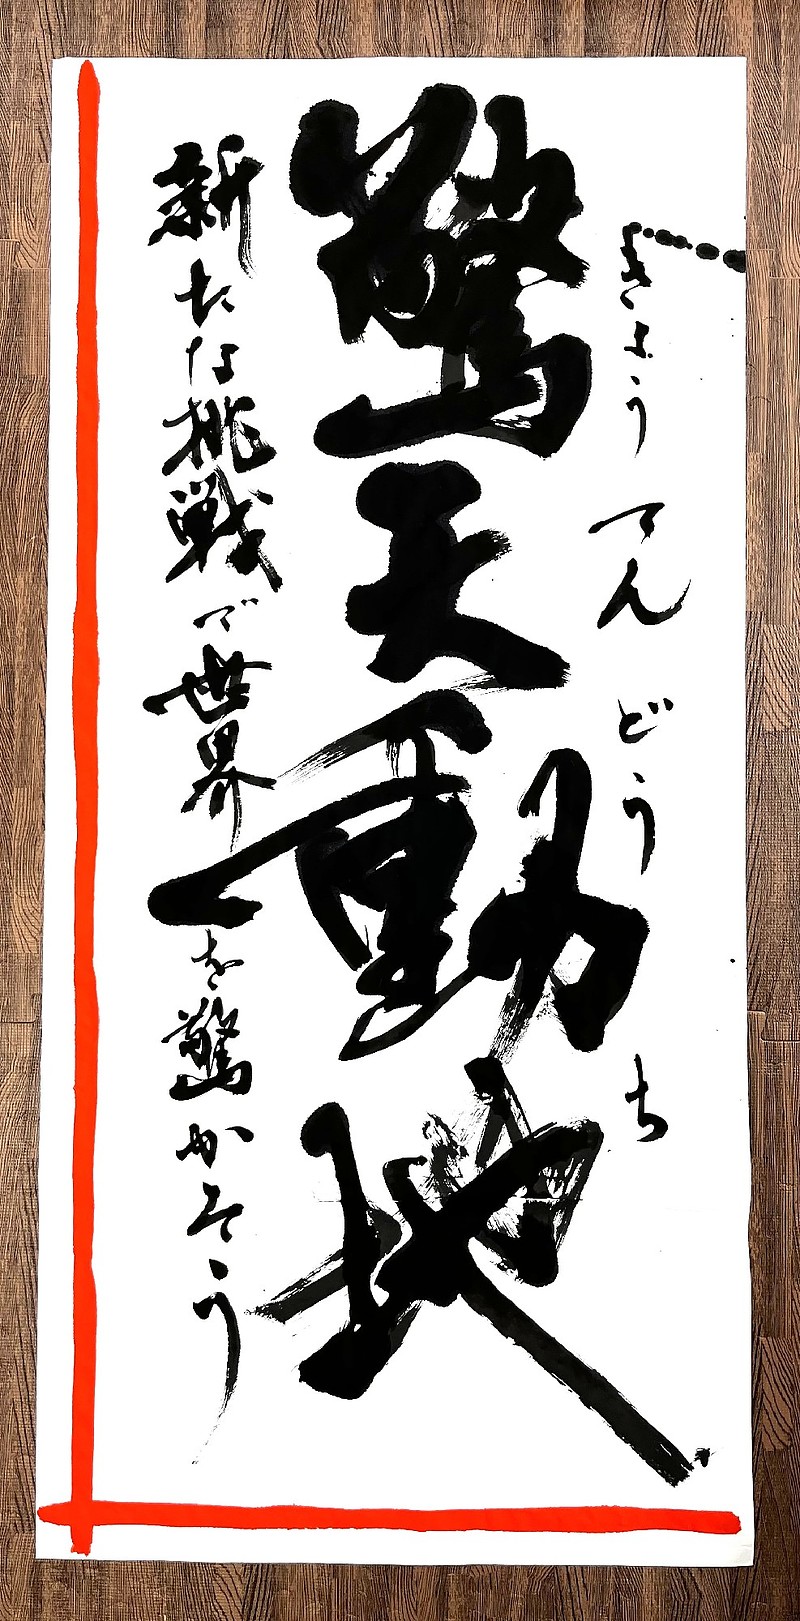 きょう てん どう ち
驚天動地
新たな挑戦で世界を驚かそう